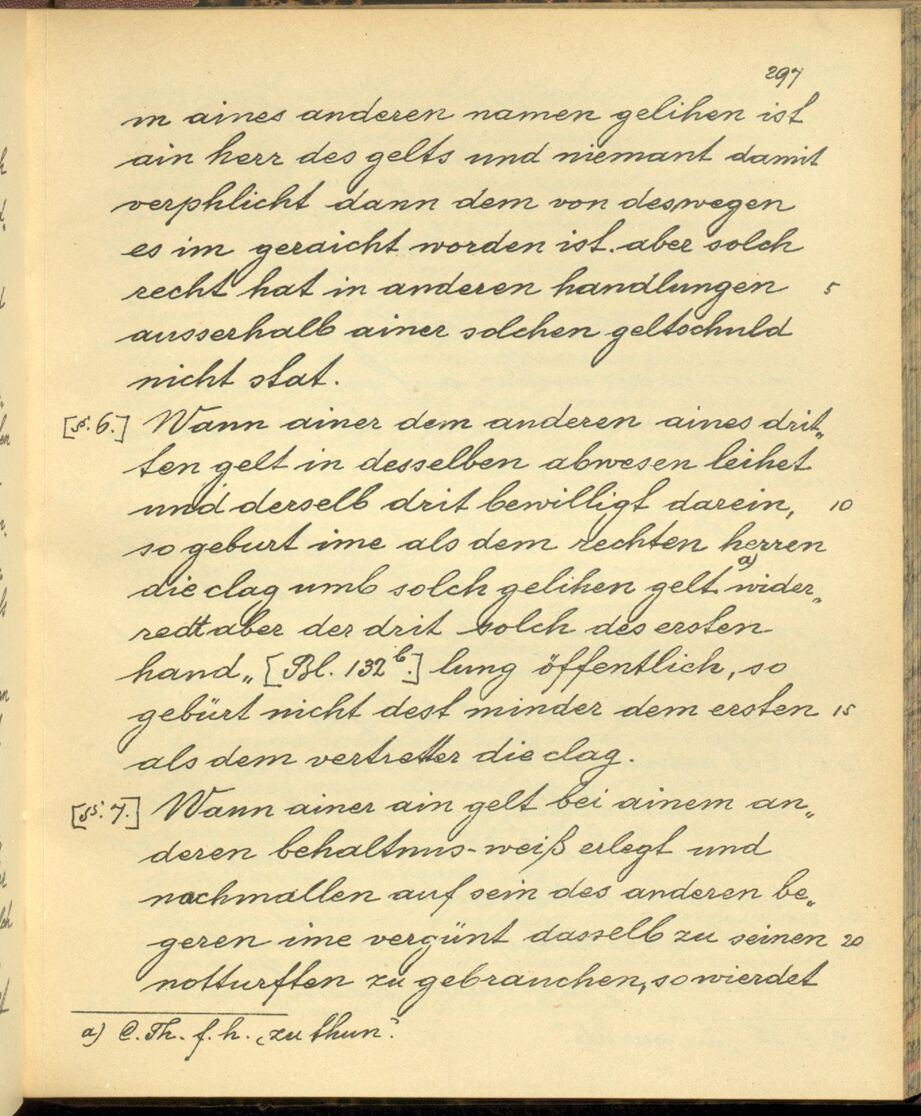 297
in aines anderen namen gelihen ist
ain herr des gelts und niemant damit
verphlicht dann dem von deswegen
es im geraicht worden ist. aber solch
recht hat in anderen handlungen 5
ausserhalb ainer solchen geltschuld
nicht stat.
[§. 6.] Wann ainer dem anderen aines drit„
ten gelt in desselben abwesen leihet
und derselb drit bewilligt darein, 10
so geburt ime als dem rechten herren
die clag umb solch gelihen gelt a) wider„
redt aber der drit solch des ersten
hand„ [Bl. 132 b.] lung öffentlich, so
gebürt nicht dest minder dem ersten 15
als dem vertretter die clag.
[§. 7.] Wann ainer ain gelt bei ainem an„
deren behaltnus-weiß erlegt und
nachmallen auf sein des anderen be„
geren ime vergünt dasselb zu seinen 20
notturften zu gebrauchen, so wierdet
a) C. Th. f. h. „zu thun“.